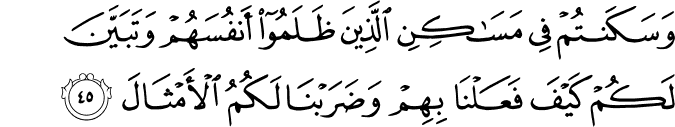 وَسَكَنتُمْ فِى مَسَـٰكِنِ ٱلَّذِينَ ظَلَمُوٓا۟ أَنفُسَهُمْ وَتَبَيَّنَ
لَكُمْ كَيْفَ فَعَلْنَا بِهِمْ وَضَرَبْنَا لَكُمُ ٱلْأَمْثَالَ ٤٥